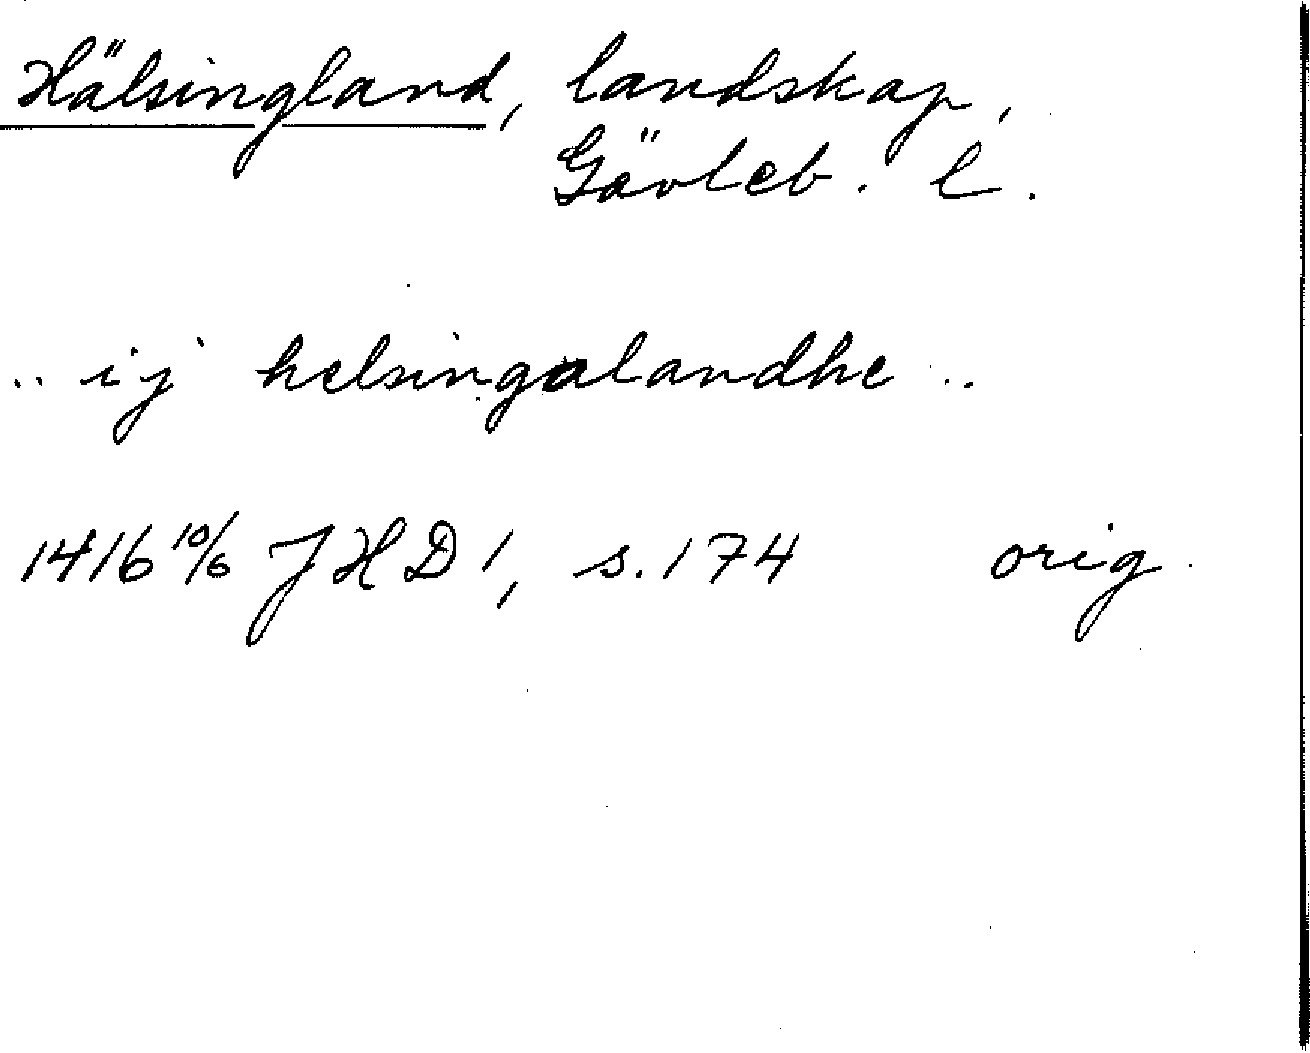 Hälsingland, landskap,
Gävleb. l.
.. ij helsingalandhe ..
1416 10/6 JHD 1, s. 174 orig.